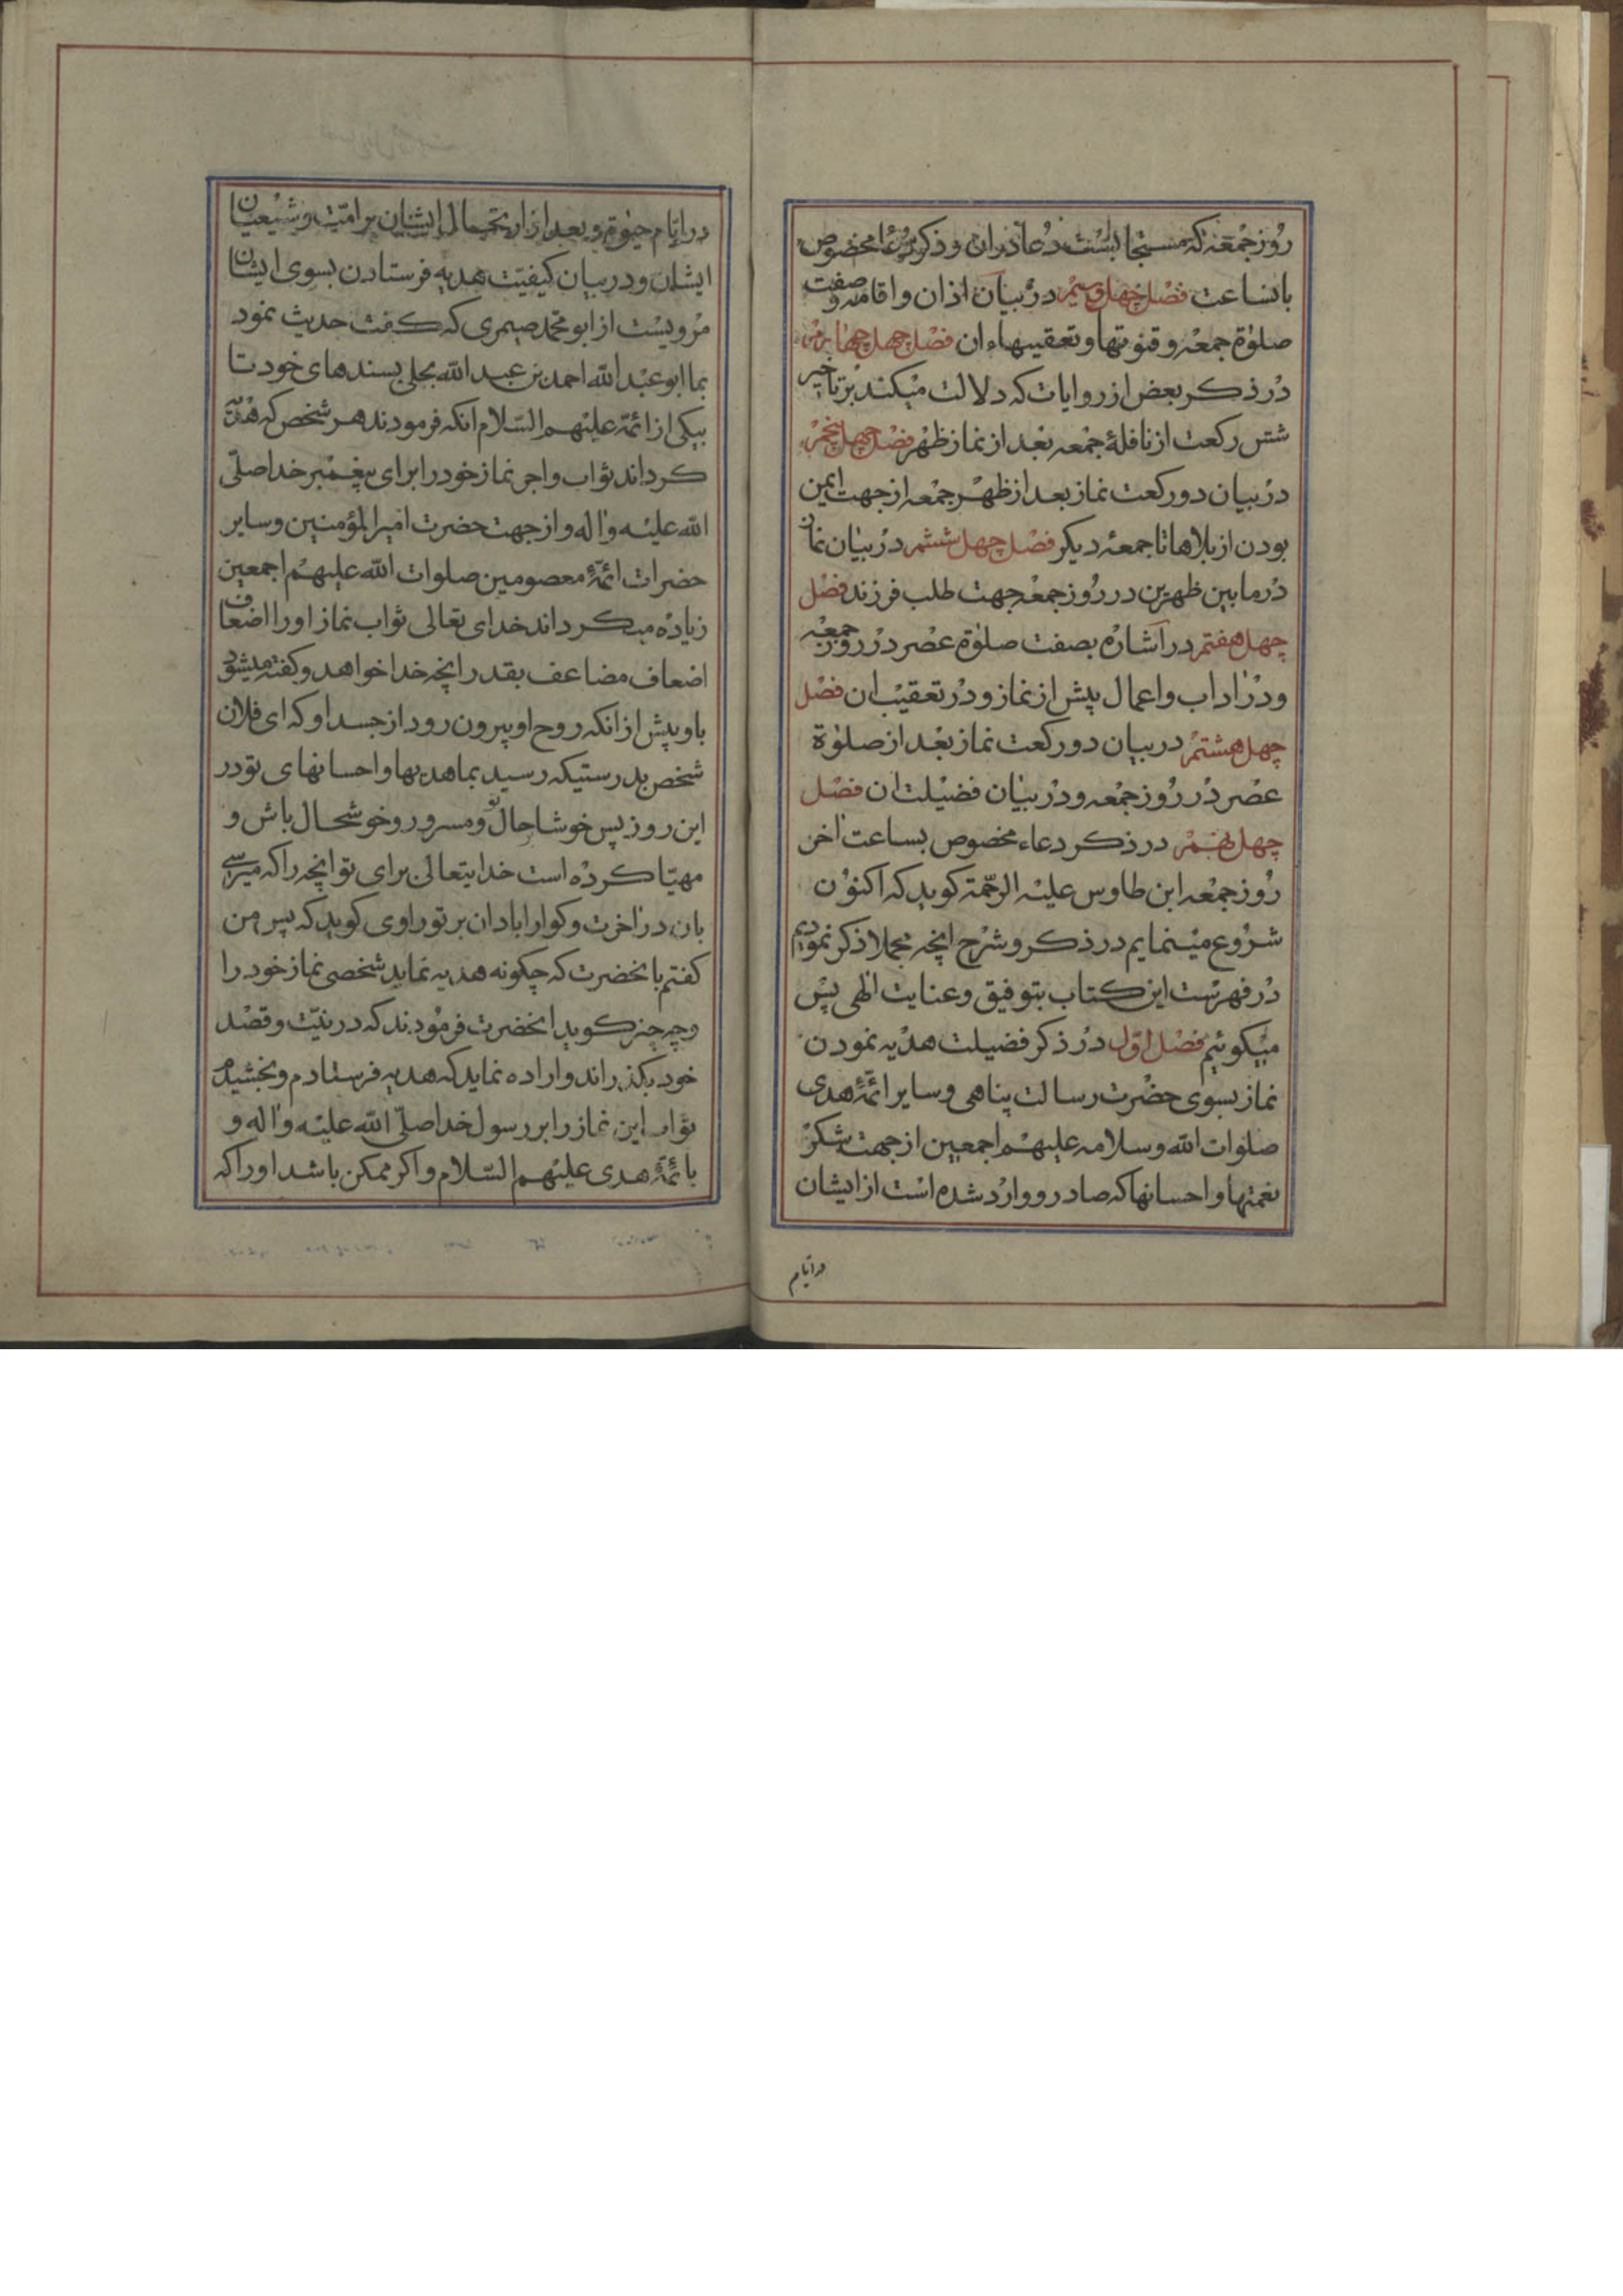 روز جمعه که مستجابست دعا دران و ذکر دعا مخصوص
بانساعت فصل چهل و سیم در بیان اذان و اقامه و صفت
صلوة جمعه و قنوتها و تعقیبهاء ان فصل چهل چهارم
در ذکر بعض از روایات که دلالت میکند بر تاخیر
شش رکعت از نافلهٔ جمعه بعد از نماز ظهر فصل چهل پنجم
در بیان دو رکعت نماز بعد از ظهر جمعه از جهت ایمن
بودن از بلاها تا جمعهٔ دیکر فصل چهل ششم در بیان نماز
در مابین ظهرین در روز جمعه جهت طلب فرزند فصل
چهل هفتم در اشاره بصفت صلوة عصر در روز جمعه
و در اداب و اعمال پیش از نماز و در تعقیب ان فصل
چهل هشتم در بیان دو رکعت نماز بعد از صلوة
عصر در روز جمعه و در بیان فضیلت ان فصل
چهل نهم در ذکر دعاء مخصوص بساعت اخر
روز جمعه ابن طاوس علیه الرحمة کوید که اکنون
شروع مینمایم در ذکر و شرح انچه مجملا ذکر نمودیم
در فهرست این کتاب بتوفیق و عنایت الهی پس
میکوئیم فصل اول در ذکر فضیلت هدیه نمودن
نماز بسوی حضرت رسالت پناهی و سایر ائمهٔ هدی
صلوات الله و سلامه علیهم اجمعین از جهت شکر
نعمتها و احسانها که صادر و وارد شده است از ایشان
در ایام
در ایام حیوة و بعد از ارتحال ایشان بر امت و شیعیان
ایشان و در بیان کیفیت هدیه فرستادن بسوی ایشان
مرویست از ابو محمد صیمری که کفت حدیث نمود
بما ابو عبد الله احمد بن عبد الله بجلی بسندهای خود تا
بیکی از ائمه علیهم السلام انکه فرمودند هر شخص که هدیه
کرداند ثواب و اجر نماز خود را برای پیغمبر خدا صلی
الله علیه و اله و از جهت حضرت امیر المؤمنین و سایر
حضرات ائمهٔ معصومین صلوات الله علیهم اجمعین
زیاده میکرداند خدای تعالی ثواب نماز او را اضعاف
اضعاف مضاعف بقدر انچه خدا خواهد و کفته میشود
باو پیش از انکه روح او بیرون رود از جسد او که ای فلان
شخص بدرستیکه رسید بما هدیها و احسانهای تو در
این روز پس خوشا حال تو و مسرور و خوشحال باش و
مهیا کرده است خدایتعالی برای تو انچه را که میرسی
بان در اخرت و کوارا باد ان بر تو راوی کوید که پس من
کفتم بانحضرت که چکونه هدیه نماید شخصی نماز خود را
و چه چیز کوید انحضرت فرمودند که در نیت و قصد
خود بکذراند و اراده نماید که هدیه فرستادم و بخشیدم
ثواب این نماز را بر رسول خدا صلی الله علیه و اله و
بائمهٔ هدی علیهم السلام و اکر ممکن باشد او را که